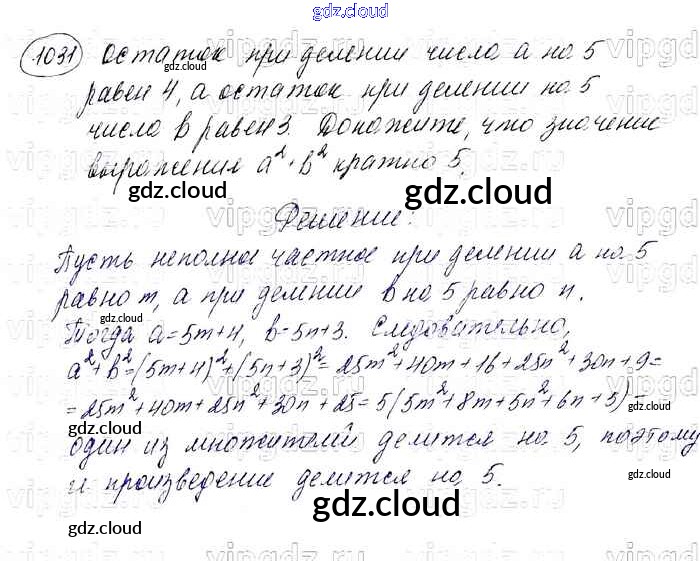 gdz.cloud
gdz.cloud
1031 Остаток при делении числа a на 5
равен 4, а остаток при делении на 5
числа b равен 3. Докажите, что значение
выражения a² + b² кратно 5.
gdz.cloud
gdz.cloud
Решение:
Пусть неполное частное при делении a на 5
равно m, а при делении b на 5 равно n.
gdz.cloud
gdz.cloud
Тогда a=5m+4, b=5n+3. Следовательно,
a²+b²=(5m+4)²+(5n+3)²=25m²+40m+16+25n²+30n+9=
=25m²+40m+25n²+30n+25=5(5m²+8m+5n²+6n+5) –
gdz.cloud
gdz.cloud
один из множителей делится на 5, поэтому
и произведение делится на 5.
gdz.cloud
gdz.cloud
gdz.cloud
gdz.cloud